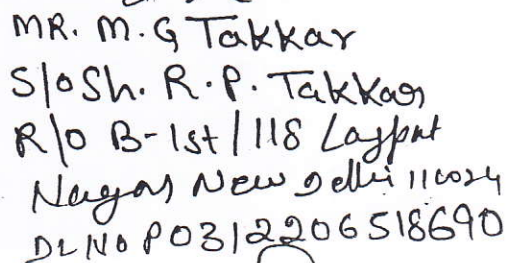 MR. M. G Takkar
S/o Sh. R. P. Takkar
R/o B-1st/118 Lajpat
Nagar New Delhi 110024
DL No P03122206518690